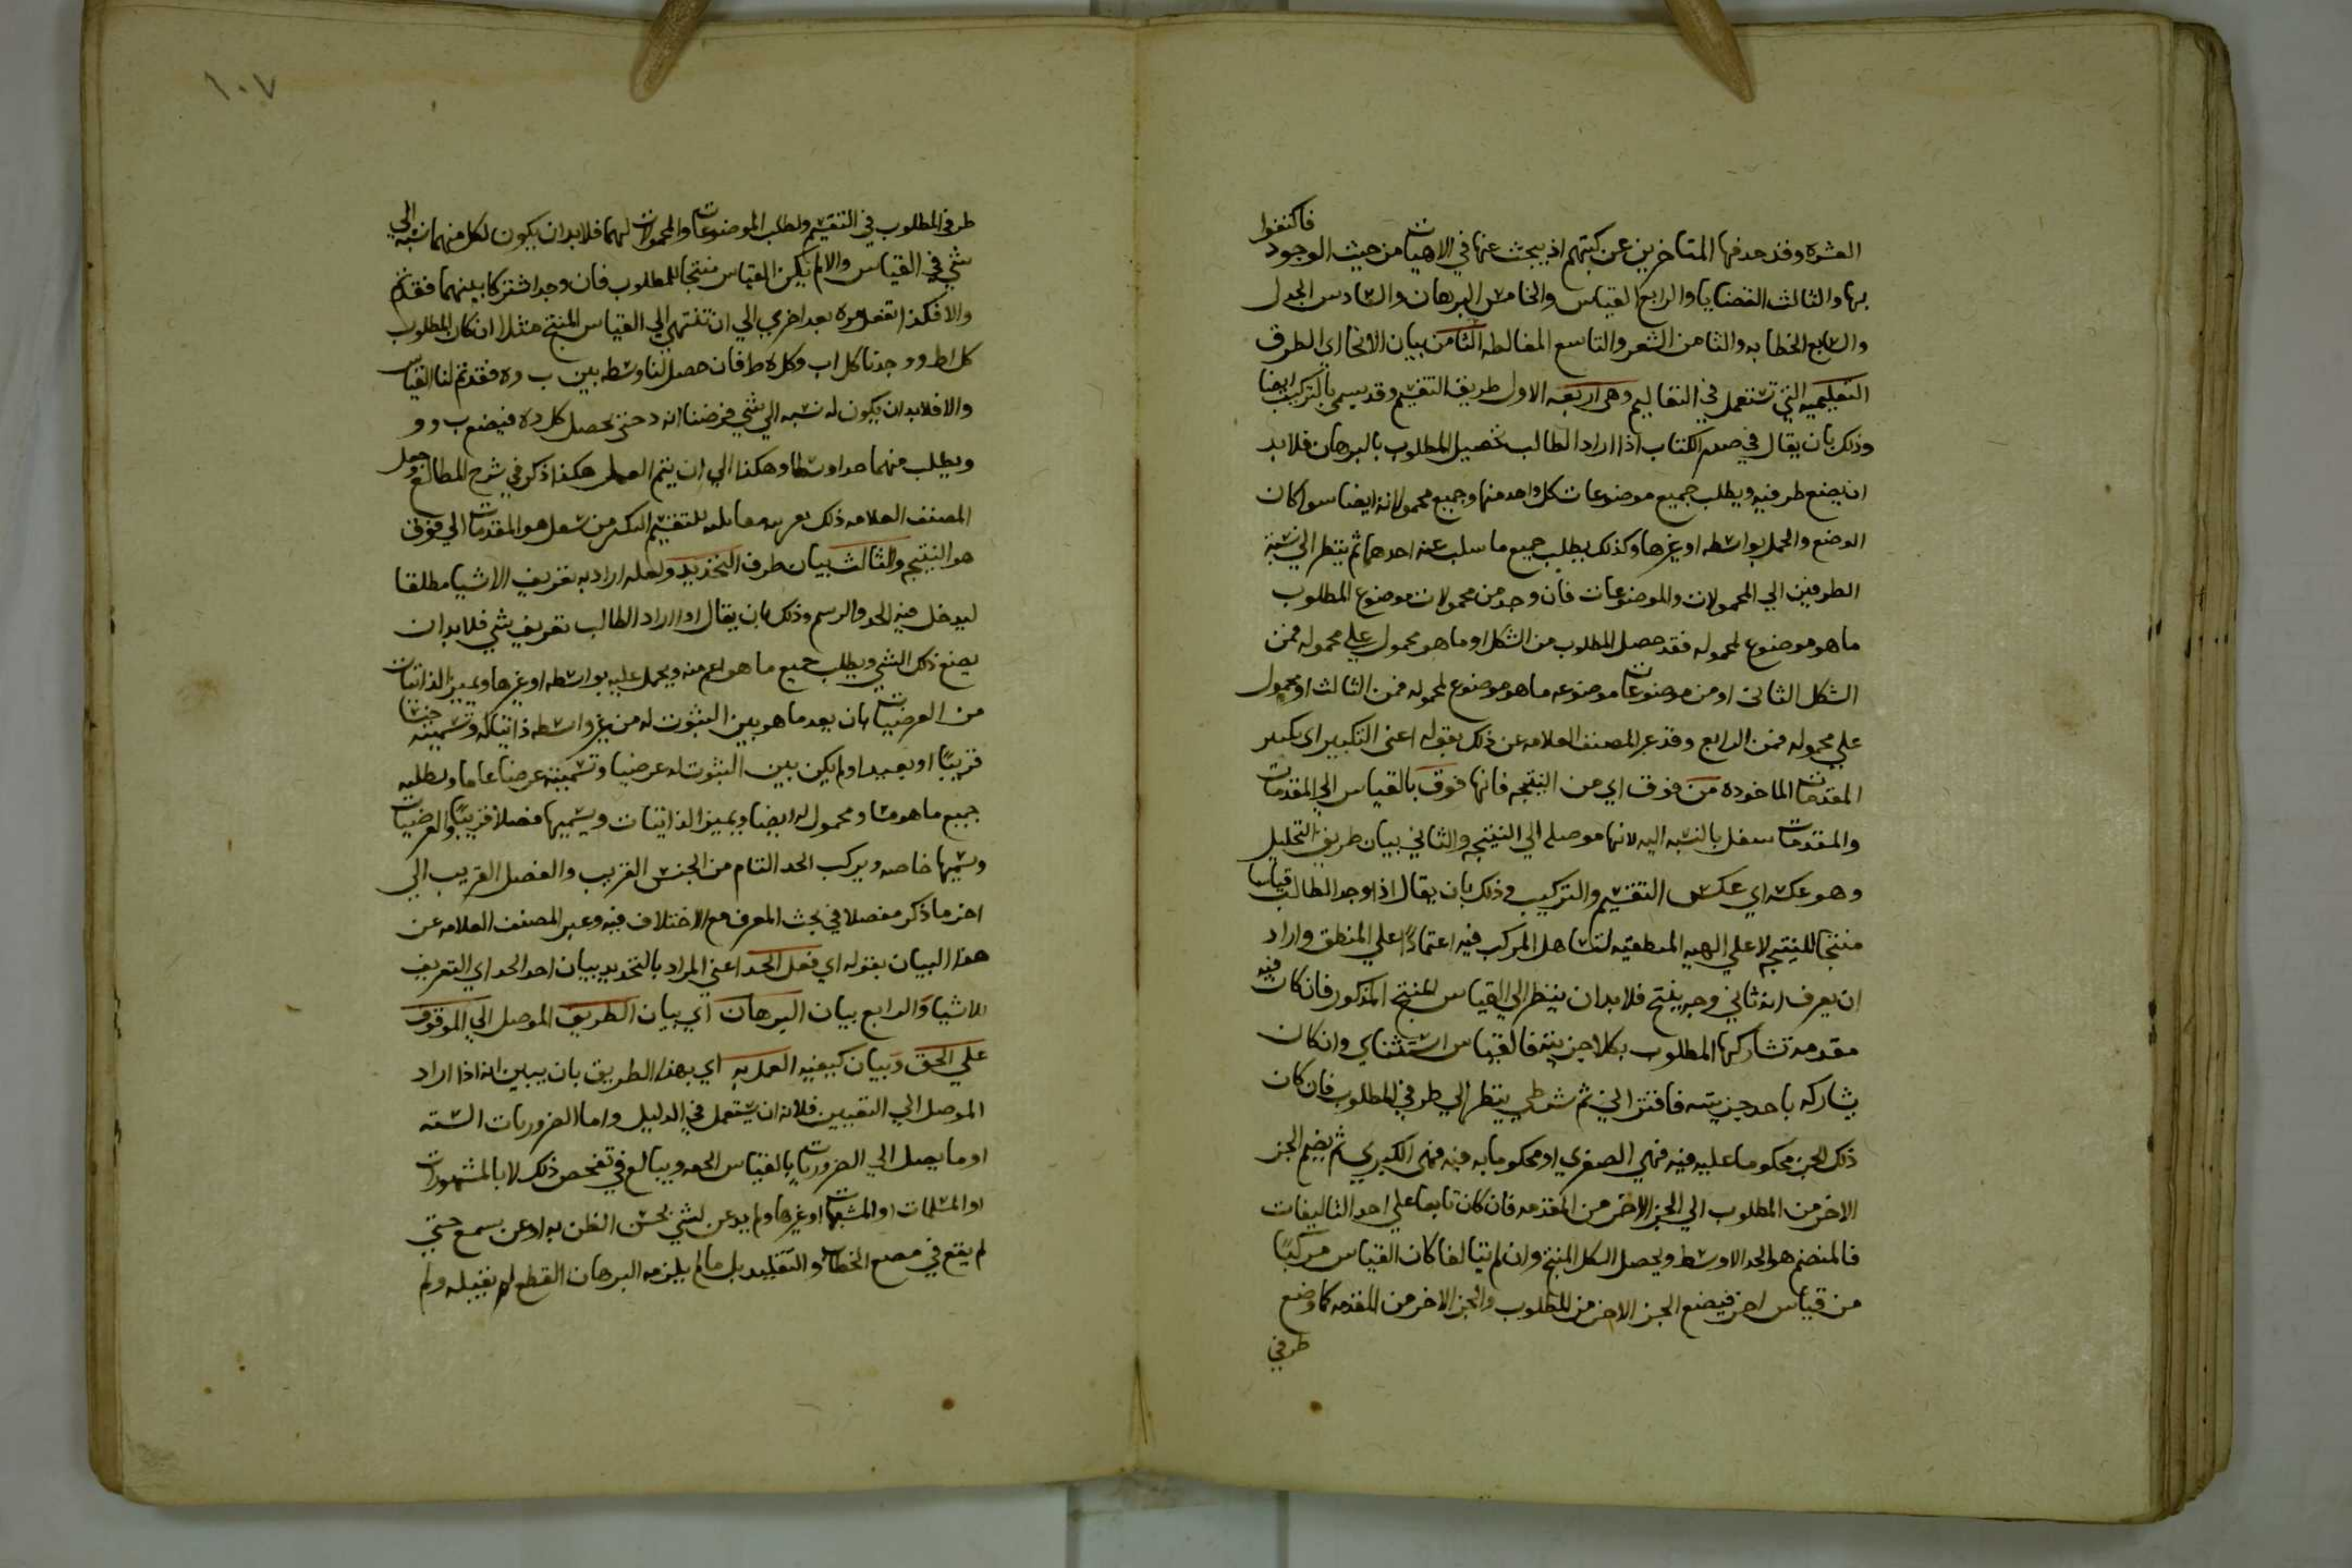 العشرة وقد حدفها المتاخرين عن كتبهم اذ يبحث عنها في الالاهيات من حيث الوجود فاكتفوا
بها والثالث القضايا والرابع القياس والخامس البرهان والسادس الجدل
والسابع الخطابه والثامن الشعر والتاسع المغالطه الثامن بيان الانحا اي الطرق
التعليميه التي تستعمل في التعاليم وهي اربعه الاول طريق التقسيم وقد يسمى بالتركيب ايضا
وذلك بان يقال في صدر الكتاب اذا اراد الطالب تحصيل المطلوب بالبرهان فلا بد
ان يضع طرفيه ويطلب جميع موضوعات كل واحد منها وجميع محمولاته ايضا سوا كان
الوضع والحمل بواسطه او غيرها وكذلك يطلب جميع ما سلب عنه احدهما ثم ينظر الي نسبة
الطرفين الي المحمولات والموضوعات فان وجد من محمولات موضوع المطلوب
ما هو موضوع لمحموله فقد حصل المطلوب من الشكل او ما هو محمول علي محموله فمن
الشكل الثاني او من موضوعات موضوعه ما هو موضوع لمحموله فمن الثالث او محمول
علي محموله فمن الرابع وقد عبر المصنف العلامه عن ذلك بقوله اعني التكثير اي تكثير
المقدمات الماخوده من فوق اي من النتيجه فانها فوق بالقياس الي المقدمات
والمقدمات سفل بالنسبه اليه لانها موصله الي النتيجه والثاني بيان طريق التحليل
وهو عكسه اي عكس التقسيم والتركيب وذلك بان يقال اذا وجد الطالب قياسا
منتجا للنتيجه لا علي الهيه المنطقيه لتساهل المركب فيه اعتمادًا علي المنطق واراد
ان يعرف انه ثاني وجه ينتج فلا بد ان ينظر الي القياس المنتج المذكور فان كان فيه
مقدمه تشاركها المطلوب بكلا جزئيته فالقياس استثناي وان كان
يشاركه باحد جزيته فاقتراني ثم شرطي ينظر الي طرفي المطلوب فان كان
ذلك الجز محكوما عليه فيه فهي الصغري او محكوما به فيه فهي الكبري ثم يضم الجز
الاخر من المطلوب الي الجز الاخر من المقدمه فان كان تابعا علي احد التاليفات
فالمنضم هو الحد الاوسط ويحصل الشكل المنتج وان لم يتالفا كان القياس مركبًا
من قياس اخر فيضع الجز الاخر من المطلوب والجز الاخر من المقدمه كما وضع
طرفي
١٠٧
طرفي المطلوب في التقسيم ولطلب الموضوعات والمحمولات لهما فلا بد ان يكون لكل منهما نسبه الي
شي في القياس والا لم يكن القياس منتجا للمطلوب فان وجد اشتركا بينهما فقد تم
والا فكذا تفعل مره بعد اخري الي ان تنتهي الي القياس المنتج مثلا ان كان المطلوب
كل اط ووجدنا كل اب وكل ه ط فان حصل لنا وسطه بين ب وه فقد تم لنا القياس
والا فلا بد ان يكون له نسبه الي شي فرضنا انه د حتي يحصل كل د ه فيضع ب و و
ويطلب منهما حدا وسطا وهكذا الي ان يتم العمل هكذا ذكر في شرح المطالع وجعل
المصنف العلامه ذلك مقابله للتقسيم التكثر من سفل هو المقدمات الي فوق
هو النتيجه والثالث بيان طرف التحديد ولعله اراد به تعريف الاشيا مطلقا
ليدخل فيه الحد والرسم وذلك بان يقال اذا اراد الطالب تعريف شي فلا بد ان
يضع ذلك الشي ويطلب جميع ما هو اعم منه ويحمل عليه بواسطه او غيرها ويميز الذاتيات
من العرضيات بان يعد ما هو بين الثبوت له من غير واسطه ذاتيا له وتسميته جنسا
قريبًا او بعيدا ولم يكن بين الثبوت له عرضيا وتسميته عرضا عاما ويطلبه
جميع ما هو مساو محمول له ايضا ويميز الذاتيات ويسميها فصلا قريبًا والعرضيات
وسميها خاصه ويركب الحد التام من الجنس القريب والفصل القريب الي
اخر ما ذكر مفصلا في بحث المعرف مع الاختلاف فيه وعبر المصنف العلامه عن
هذا البيان بقوله اي فعل الحد اعني المراد بالتحديد بيان احد الحد اي التعريف
للاشيا والرابع بيان البرهان اي بيان الطريق الموصل الي الوقوف
علي الحق وبيان كيفيه العمل به اي بهذا الطريق بان يبين انه اذا اراد
الموصل الي اليقين فلا بد ان يستعمل في الدليل واما الضروريات السته
او ما يصل الي الضروريات بالقياس الحجه ويبالغ في تفحص ذلك لا بالمشهورات
او المسلمات او المشبهات او غيرها ولم يدعن لشي بحسن الظن به او عن يسمع حتي
لم يقع في الخطابه والتقليد بل ما لم يلزمه البرهان القطع لم يقبله ولم